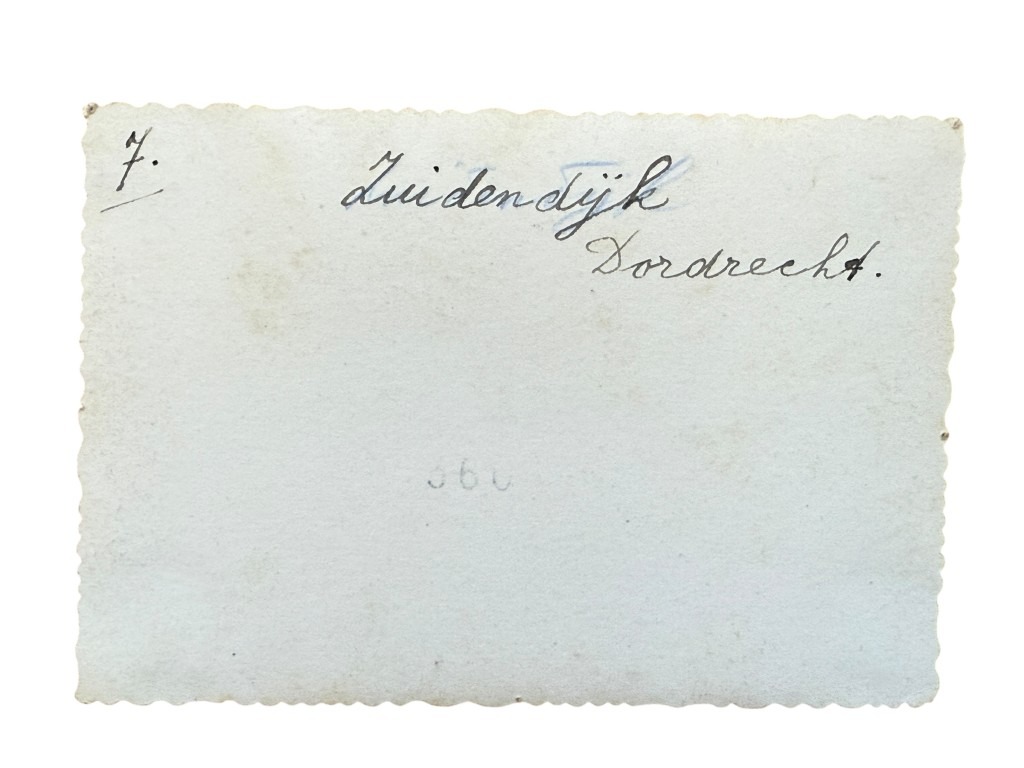 7.
Zuidendijk
Dordrecht.